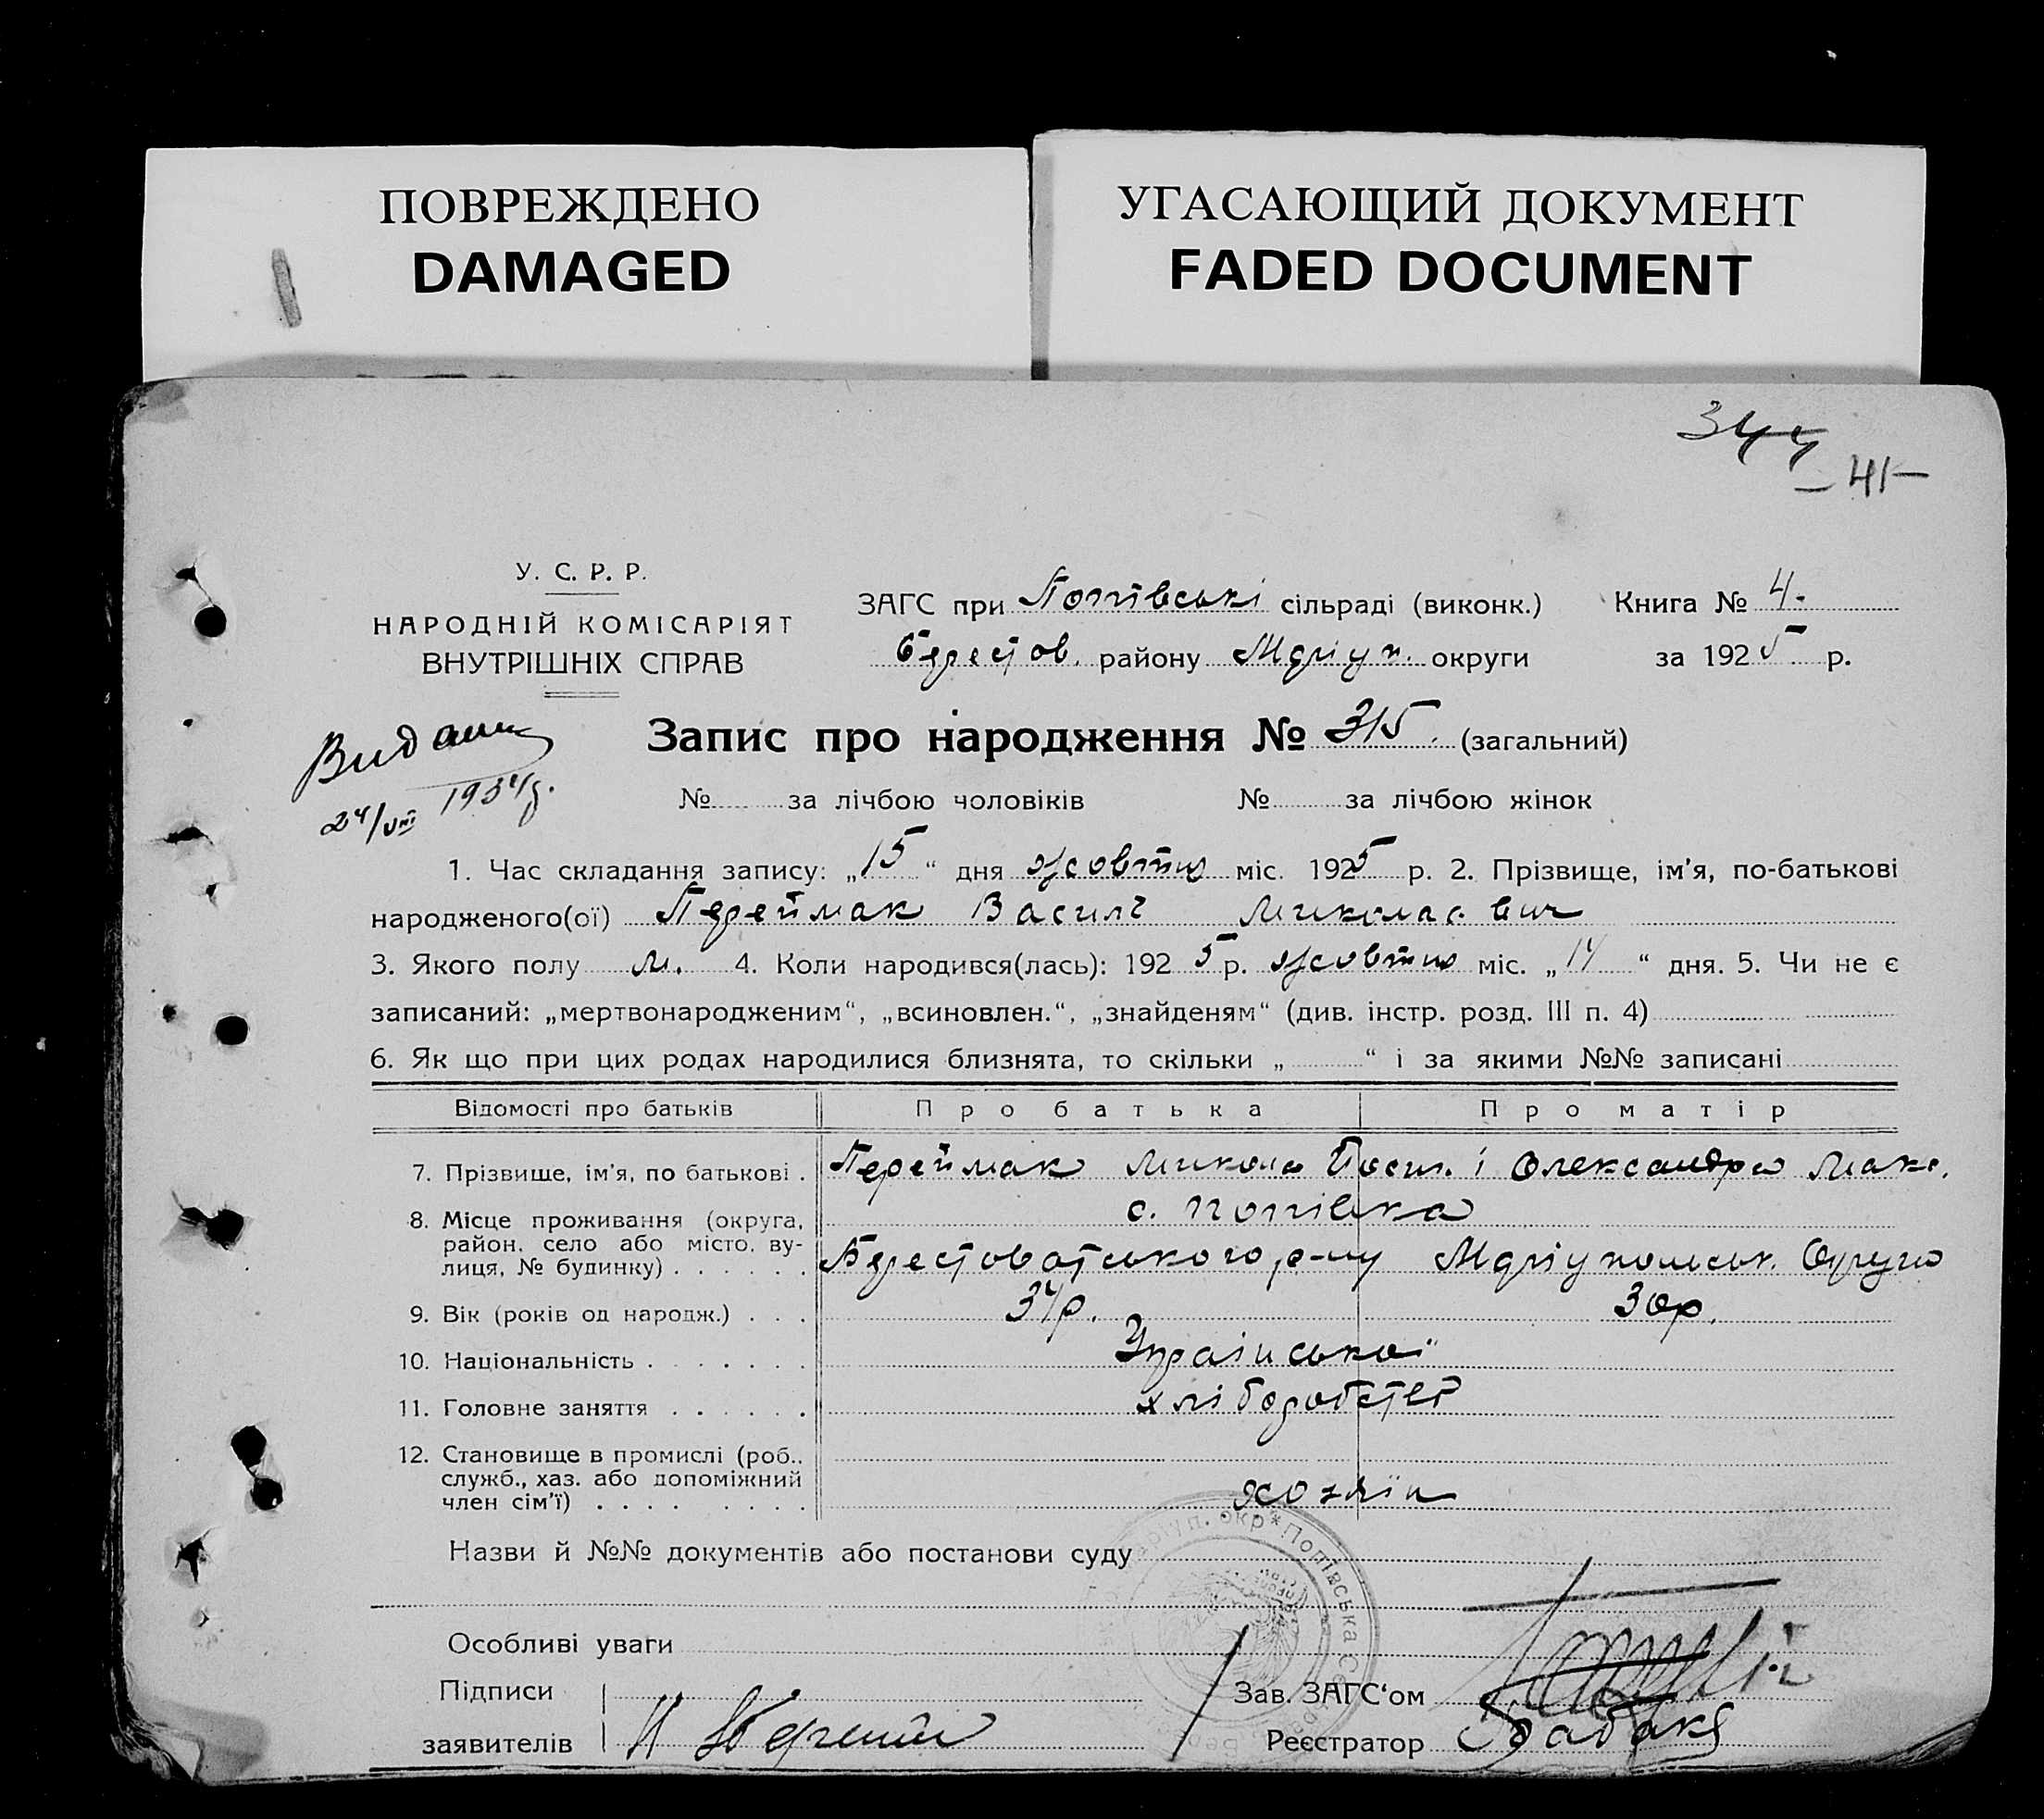 ПОВРЕЖДЕНО
DAMAGED
УГАСАЮЩИЙ ДОКУМЕНТ
FADED DOCUMENT
344
41
У. С. Р. Р.
НАРОДНІЙ КОМІСАРІЯТ
ВНУТРІШНІХ СПРАВ
ЗАГС при Попівські сільраді (виконк.) Книга № 4.
Берестов. району Маріуп. округи за 1925 р.
Видан
24/VIII 1934р.
Запис про народження № 315. (загальний)
№ за лічбою чоловіків № за лічбою жінок
1. Час складання запису: „15“ дня жовтня міс. 1925 р. 2. Прізвище, ім’я, по-батькові
народженого(ої) Переймак Василь Миколаєвич
3. Якого полу м. 4. Коли народився(лась): 1925 р. жовтня міс. „14“ дня. 5. Чи не є
записаний: „мертвонародженим“, „всиновлен.“, „знайденям“ (див. інстр. розд. III п. 4)
6. Як що при цих родах народилися близнята, то скільки „ “ і за якими №№ записані
Відомості про батьків Про батька Про матір
7. Прізвище, ім’я, по батькові . Переймак Микола і Олександра Мак.
8. Місце проживання (округа, с. Попівка
район, село або місто, ву-
лиця, № будинку) . . . . . . Берестоватського р-ну Маріупольськ. Округа
9. Вік (років од народж.) . . . 34р. 30р.
10. Національність . . . . . . . Української
11. Головне заняття . . . . . . хліборобств
12. Становище в промислі (роб.,
служб., хаз. або допоміжний
член сім’ї) . . . . . . . . . хозяїн
Назви й №№ документів або постанови суду
Маріуп. окр * Попівська
Особливі уваги
Підписи
заявителів
Зав. ЗАГС‘ом
Реєстратор